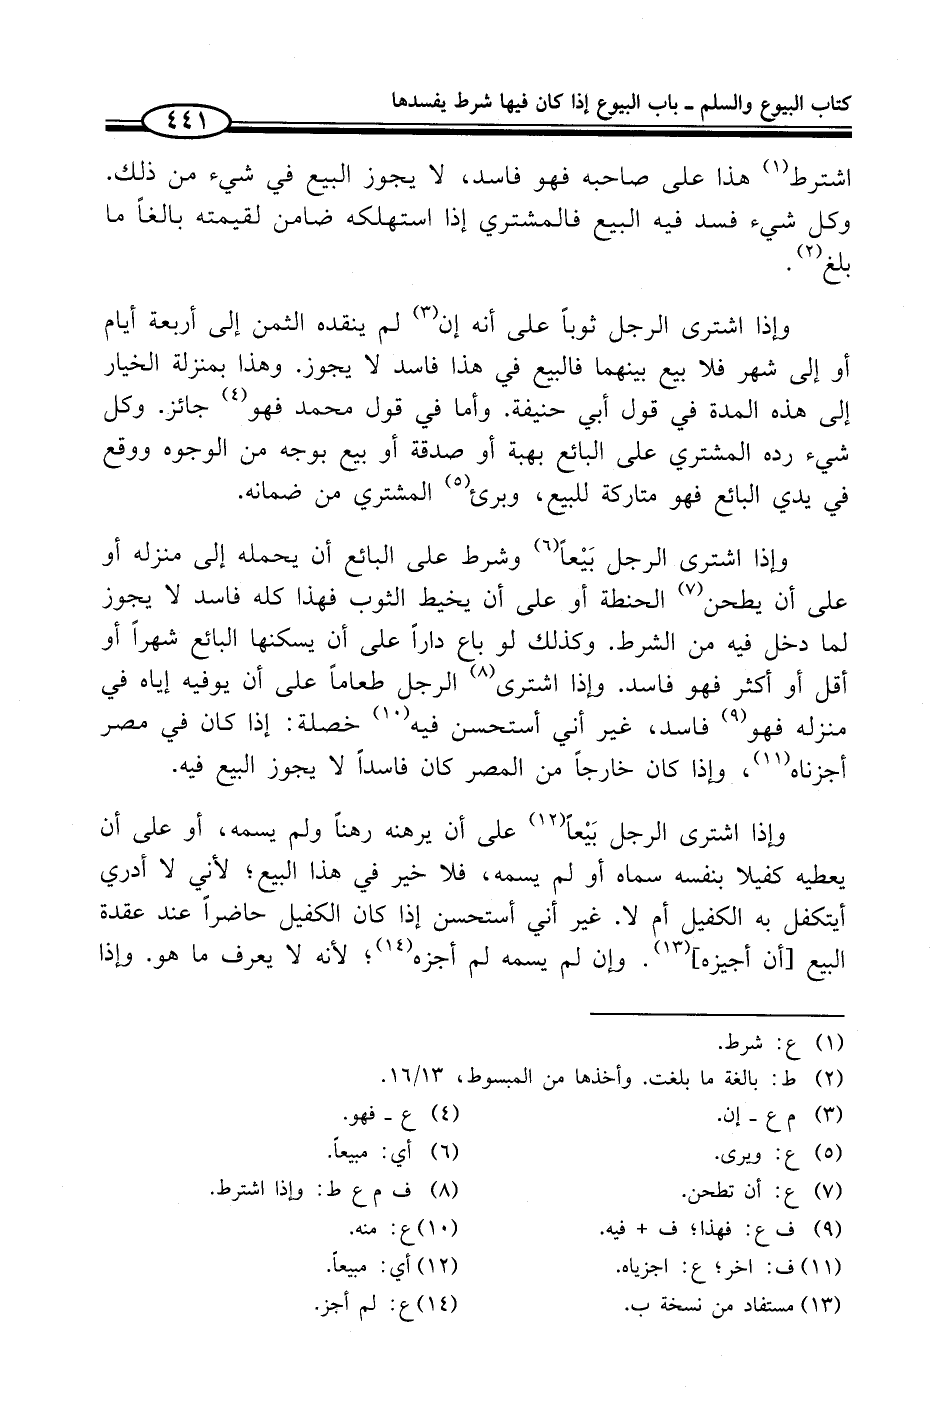 كتاب البيوع والسلم ـ باب البيوع إذا كان فيها شرط يفسدها
٤٤١
اشترط(١) هذا على صاحبه فهو فاسد، لا يجوز البيع في شيء من ذلك.
وكل شيء فسد فيه البيع فالمشتري إذا استهلكه ضامن لقيمته بالغاً ما
بلغ(٢).
وإذا اشترى الرجل ثوباً على أنه إن(٣) لم ينقده الثمن إلى أربعة أيام
أو إلى شهر فلا بيع بينهما فالبيع في هذا فاسد لا يجوز. وهذا بمنزلة الخيار
إلى هذه المدة في قول أبي حنيفة. وأما في قول محمد فهو(٤) جائز. وكل
شيء رده المشتري على البائع بهبة أو صدقة أو بيع بوجه من الوجوه ووقع
في يدي البائع فهو متاركة للبيع، وبرئ(٥) المشتري من ضمانه.
وإذا اشترى الرجل بَيْعاً(٦) وشرط على البائع أن يحمله إلى منزله أو
على أن يطحن(٧) الحنطة أو على أن يخيط الثوب فهذا كله فاسد لا يجوز
لما دخل فيه من الشرط. وكذلك لو باع داراً على أن يسكنها البائع شهراً أو
أقل أو أكثر فهو فاسد. وإذا اشترى(٨) الرجل طعاماً على أن يوفيه إياه في
منزله فهو(٩) فاسد، غير أني أستحسن فيه(١٠) خصلة: إذا كان في مصر
أجزناه(١١)، وإذا كان خارجاً من المصر كان فاسداً لا يجوز البيع فيه.
وإذا اشترى الرجل بَيْعاً(١٢) على أن يرهنه رهناً ولم يسمه، أو على أن
يعطيه كفيلا بنفسه سماه أو لم يسمه، فلا خير في هذا البيع؛ لأني لا أدري
أيتكفل به الكفيل أم لا. غير أني أستحسن إذا كان الكفيل حاضراً عند عقدة
البيع [أن أجيزه](١٣). وإن لم يسمه لم أجزه(١٤)؛ لأنه لا يعرف ما هو. وإذا
(١) ع: شرط.
(٢) ط: بالغة ما بلغت. وأخذها من المبسوط، ١٦/١٣.
(٣) م ع ـ إن. (٤) ع ـ فهو.
(٥) ع: ويرى. (٦) أي: مبيعاً.
(٧) ع: أن تطحن. (٨) ف م ع ط: وإذا اشترط.
(٩) ف ع: فهذا؛ ف + فيه. (١٠) ع: منه.
(١١) ف: اخر؛ ع: اجزياه. (١٢) أي: مبيعاً.
(١٣) مستفاد من نسخة ب. (١٤) ع: لم أجز.